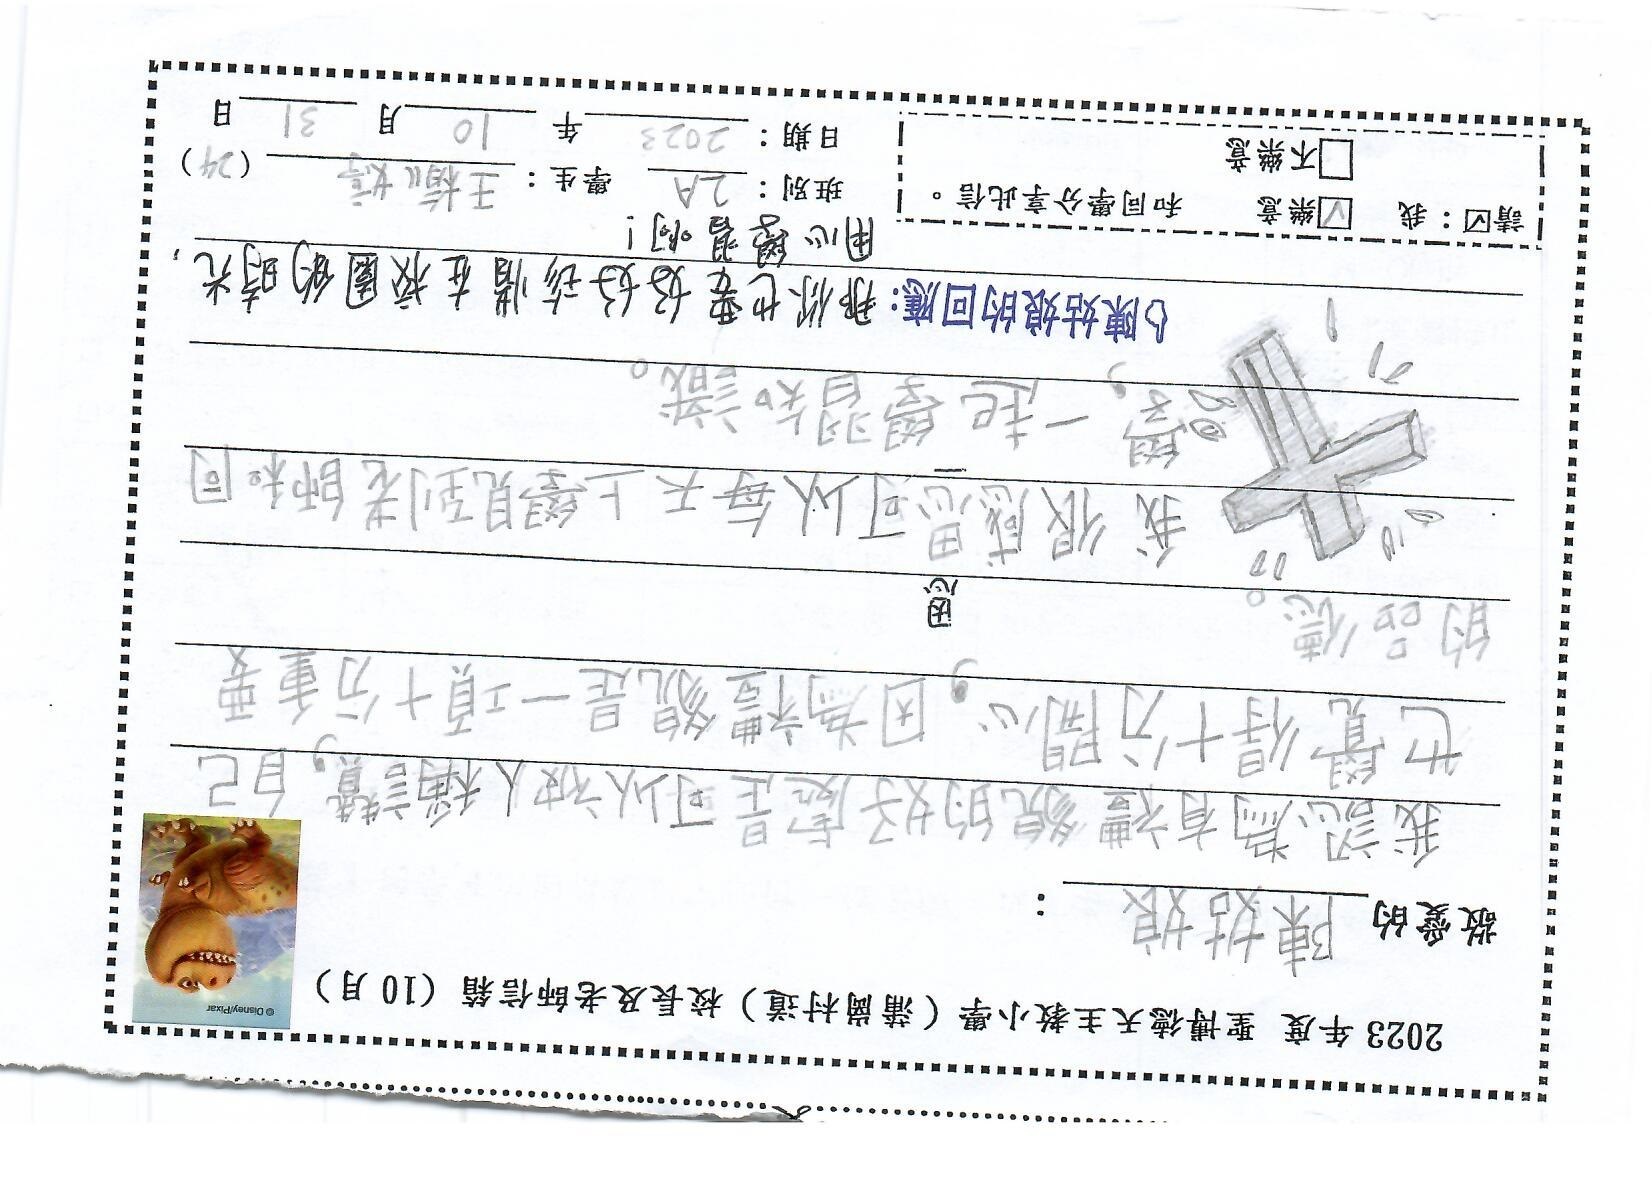 2023 年度 聖博德天主教小學（蒲崗村道）校長及老師信箱（10 月）
©Disney/Pixar
敬愛的 陳姑娘 ：
我認為有禮貌的好處是可以被人稱讚，自己
也覺得十分開心，因為禮貌是一項十分重要
的品德。
恩
我很感恩可以每天上學見到老師和同
學，一起學習知識。
陳姑娘的回應：那你也要好好珍惜在校園的時光，
用心學習啊！
請☑：我 ☑樂意 和同學分享此信。
□不樂意
班別：2A 學生：王 （24）
日期：2023 年 10 月 31 日